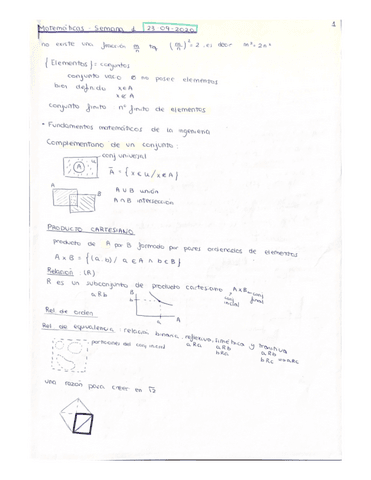 Matemáticas - Semana 1 21-09-2020
1
no existe una fracción m/n tq (m/n)² = 2 es decir m² = 2n²
{Elementos} = conjuntos
conjunto vacío no posee elementos
bien definido x∈A
x∉A
conjunto finito: nº finito de elementos
- Fundamentos matemáticos de la ingeniería
Complementario de un conjunto:
conj universal
A
u
Ā = {x ∈ u / x ∉ A}
A
B
A ∪ B unión
A ∩ B intersección
PRODUCTO CARTESIANO
producto de A por B formado por pares ordenados de elementos
A x B = {(a, b) / a ∈ A ∧ b ∈ B}
Relación (R)
R es un subconjunto de producto cartesiano A x B
a R b
conj inicial
conj final
b
a
A
Rel de orden
Rel de equivalencia: relación binaria, reflexiva, simétrica y transitiva
a R a
a R b
b R a
a R b
b R c
a R c
particiones del conj inicial
una razón para creer en √2